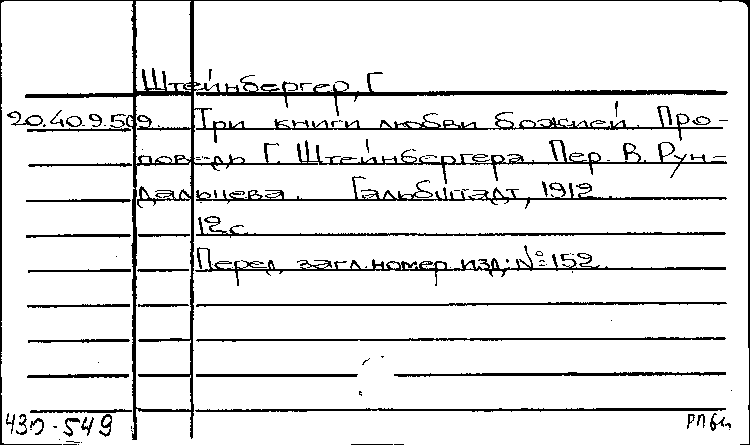 Штейнбергер, Г
20.40.9.509. Три книги любви божией. Про-
поведь Г. Штейнбергера. Пер. В. Рун-
дальцева. Гальбштадт, 1912
12с.
Перед загл. номер изд: №152.
430-549